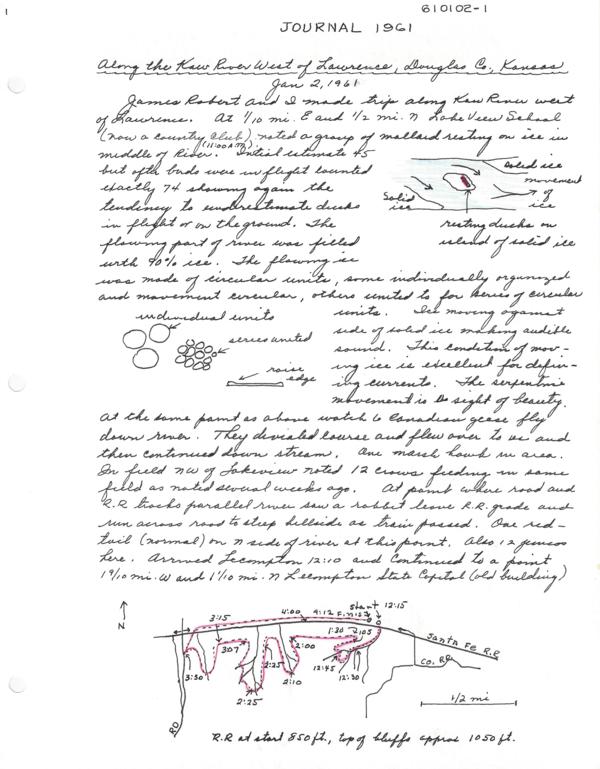 610102-1
JOURNAL 1961
Along the Kaw River West of Lawrence, Douglas Co., Kansas
Jan 2, 1961
James Robert and I made trip along Kaw River west
of Lawrence. At 1/10 mi. E and 1/2 mi. N Lake View School
(now a country club), noted a group of mallard resting on ice in
(11:00 A.M.)
middle of River. Initial estimate 45
but after birds were in flight counted
exactly 74 showing again the
tendency to underestimate ducks
in flight or on the ground. The
flowing part of river was filled
with 90% ice. The flowing ice
Solid ice
movement
of
ice
Solid
ice
resting ducks on
island of solid ice
was made of circular units, some individually organized
and movement circular, others united to for series of circular
individual units
series united
raise
edge
units. Ice moving against
side of solid ice making audible
sound. This condition of mov-
ing ice is excellent for defin-
ing currents. The serpentine
movement is sight of beauty.
At the same point as above watch 6 Canadian geese fly
down river. They deviated course and flew over to us and
then continued down stream. One marsh hawk in area.
In field NW of Lakeview noted 12 crows feeding in same
field as noted several weeks ago. At point where road and
R.R tracks parallel river saw a rabbit leave R.R. grade and
run across road to steep hillside as train passed. One red-
tail (normal) on N side of river at this point. Also 12 juncos
here. Arrived Lecompton 12:10 and continued to a point
1 9/10 mi. W and 1 1/10 mi. N Lecompton State Capitol (old building)
N
3:15
4:00
4:12 Finish
start 12:15
1:30
105
Santa Fe R.R
Co. Rd
3:07
2:00
3:30
2:25
2:10
12:45
12:30
2:25
1/2 mi
RD
R.R at start 850 ft., top of bluffs approx 1050 ft.